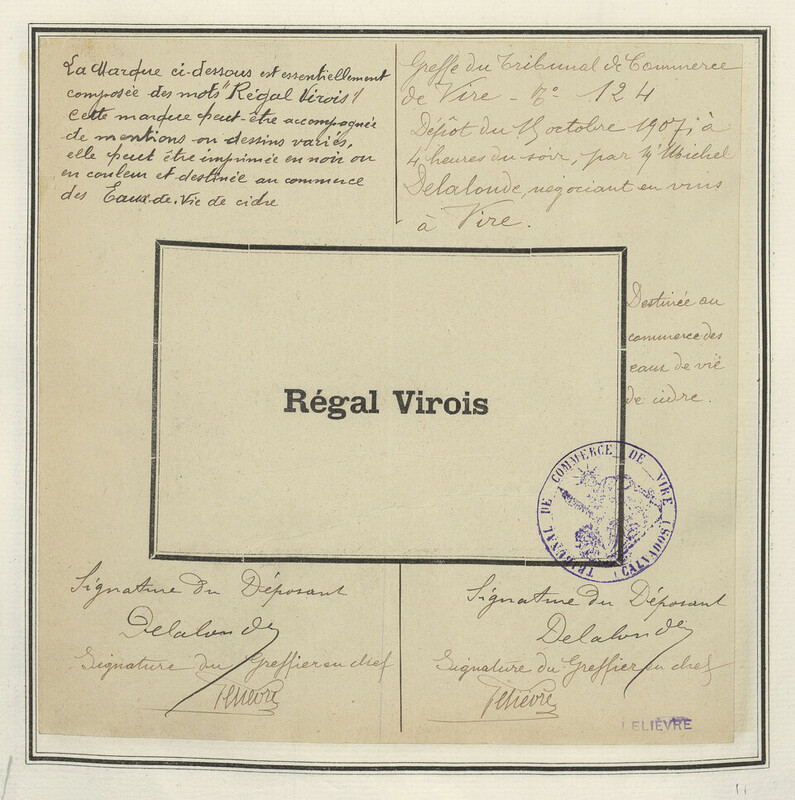 La Marque ci-dessous est essentiellement
composée des mots "Régal Virois"
Cette marque peut-être accompagnée
de mentions ou dessins variés,
elle peut être imprimée en noir ou
en couleur et destinée au commerce
des Eaux-de-Vie de cidre
Greffe du Tribunal de Commerce
de Vire - No 124
Dépôt du 15 octobre 1907, à
4 heures du soir, par Mr Michel
Delalonde, négociant en vins
à Vire.
Destinée au
commerce des
eaux de vie
de cidre.
Régal Virois
TRIBUNAL DE COMMERCE DE VIRE (CALVADOS)
Signature du Déposant
Delalonde
Signature du Greffier en chef
Lelièvre
Signature du Déposant
Delalonde
Signature du Greffier en chef
Lelièvre
LELIÈVRE